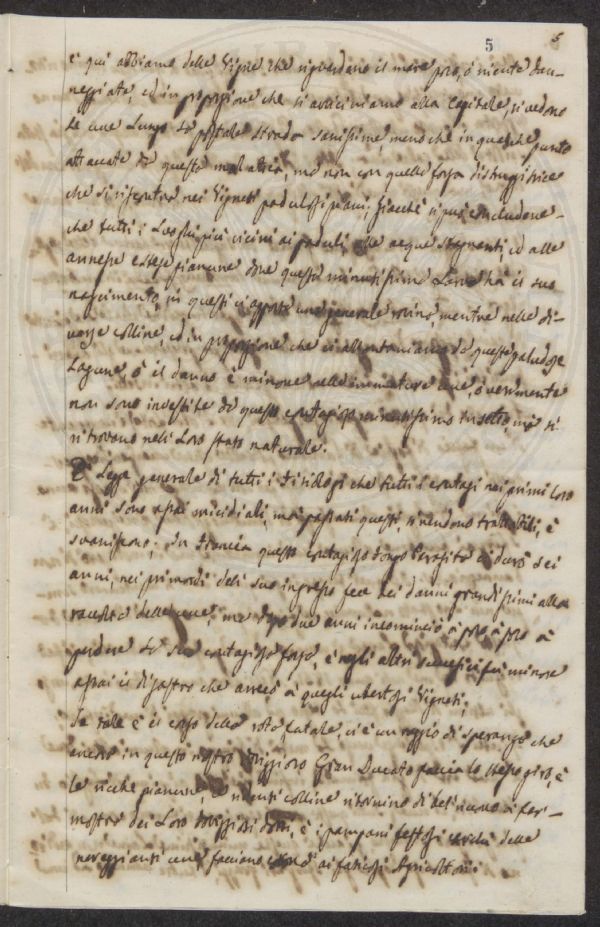 5
5
e qui abbiamo delle Vigne che riguardano il mare poco, ò niente dan-
neggiate, ed in proporzione che ci avviciniamo alla Capitale, si vedono
le uve Lungo la postale strada sanissime, meno che in qualche punto
attaccate da questo mal, ma non con quella forza distruggitrice
che si riscontra nei Vigneti padulosi piani, giacchè si può concludere-
che tutti i Luoghi più vicini ai paduli, alle acque stagnanti, ed alle
annesse estese pianure dove questa minutissima Larva hà il suo
nascimento, in questi ci apporta una generale rovina, mentre nelle di-
verse colline, ed in proporzione che ci allontaniamo da queste paludose
Lagune, ò il danno è minore nelle immature uve, ò veramente
non sono investite da questo contagioso minutissimo Insetto, mà si
ritrovano nel Loro stato naturale.
È Legge generale di tutti i Fisiologi che tutti i contagi nei primi loro
anni sono assai micidiali, mà passati questi, si rendono trattabili, e
svaniscono; In Francia questo contagioso fongo Parasita ci durò sei
anni, nei primordi del suo ingresso fece dei danni grandissimi alla
raccolta delle uve, ma dopo due anni incominciò à poco à poco à
perdere la sua contagiosa forza, e negli altri successivi fu minore
assai il disastro che arrecò à quegli ubertosi Vigneti;
Se tale è il corso della rota fatale, ci è un raggio di speranza che
ancora in questo nostro Gran Ducato faccia lo stesso giro, e
le ricche pianure, le ridenti colline ritornino di bel nuovo à far-
mostra dei Loro doni, e i pampani festosi carichi delle
nereggianti uve, facciano ai faticosi Agricoltori.